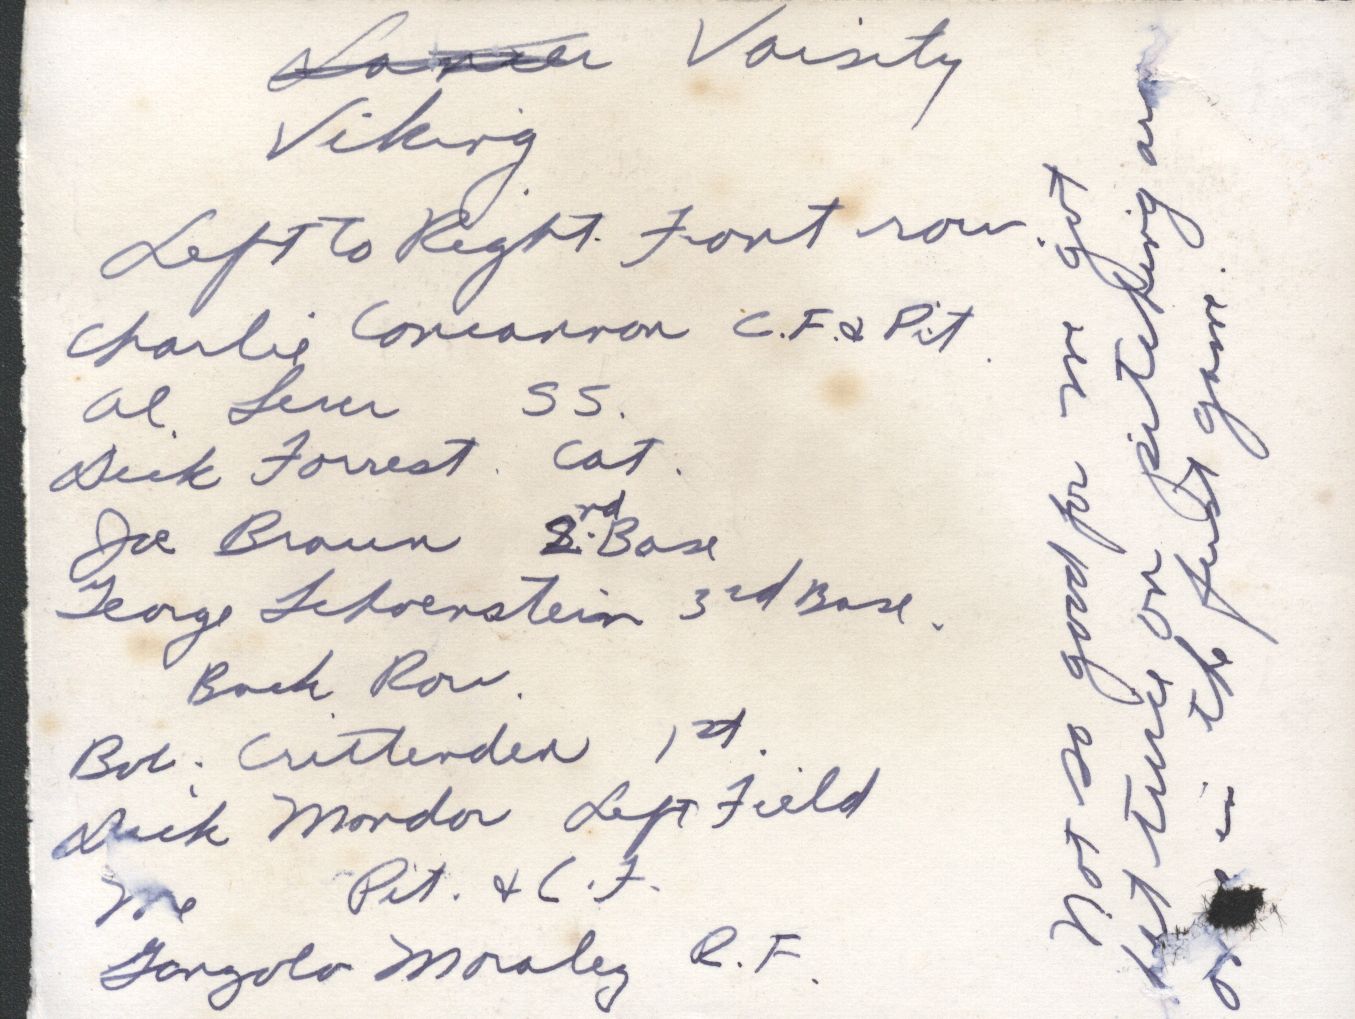 Varsity
Viking
Left to Right. Front row.
Charlie Concannon C.F. & Pit.
Al. SS.
Dick Forrest. Cat.
Joe Braun 2.rd Base
George Schoenstein 3rd Base.
Back Row.
Bob. Crittenden 1st.
Dick Mondor Left Field
Me Pit. & C.F.
Gonzolo Moraley R.F.
Not so good for me got
hit twice on pitching arm
in the first game.